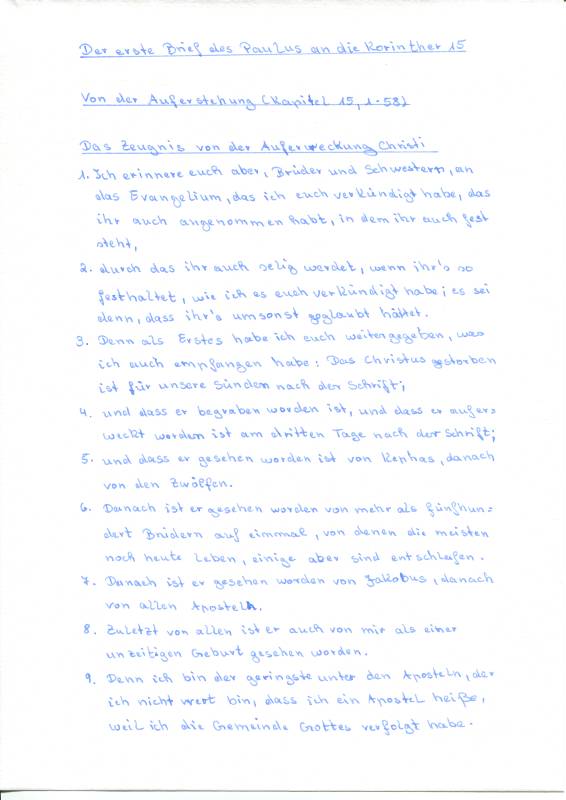 Der erste Brief des Paulus an die Korinther 15
Von der Auferstehung (Kapitel 15, 1-58)
Das Zeugnis von der Auferweckung Christi
1. Ich erinnere euch aber, Brüder und Schwestern, an
das Evangelium, das ich euch verkündigt habe, das
ihr auch angenommen habt, in dem ihr auch fest
steht,
2. durch das ihr auch selig werdet, wenn ihr's so
festhaltet, wie ich es euch verkündigt habe; es sei
denn, dass ihr's umsonst geglaubt hättet.
3. Denn als Erstes habe ich euch weitergegeben, was
ich auch empfangen habe: Das Christus gestorben
ist für unsere Sünden nach der Schrift;
4. und dass er begraben worden ist, und dass er aufer=
weckt worden ist am dritten Tage nach der Schrift;
5. und dass er gesehen worden ist von Kephas, danach
von den Zwölfen.
6. Danach ist er gesehen worden von mehr als fünfhun=
dert Brüdern auf einmal, von denen die meisten
noch heute leben, einige aber sind entschlafen.
7. Danach ist er gesehen worden von Jakobus, danach
von allen Aposteln.
8. Zuletzt von allen ist er auch von mir als einer
unzeitigen Geburt gesehen worden.
9. Denn ich bin der geringste unter den Aposteln, der
ich nicht wert bin, dass ich ein Apostel heiße,
weil ich die Gemeinde Gottes verfolgt habe.